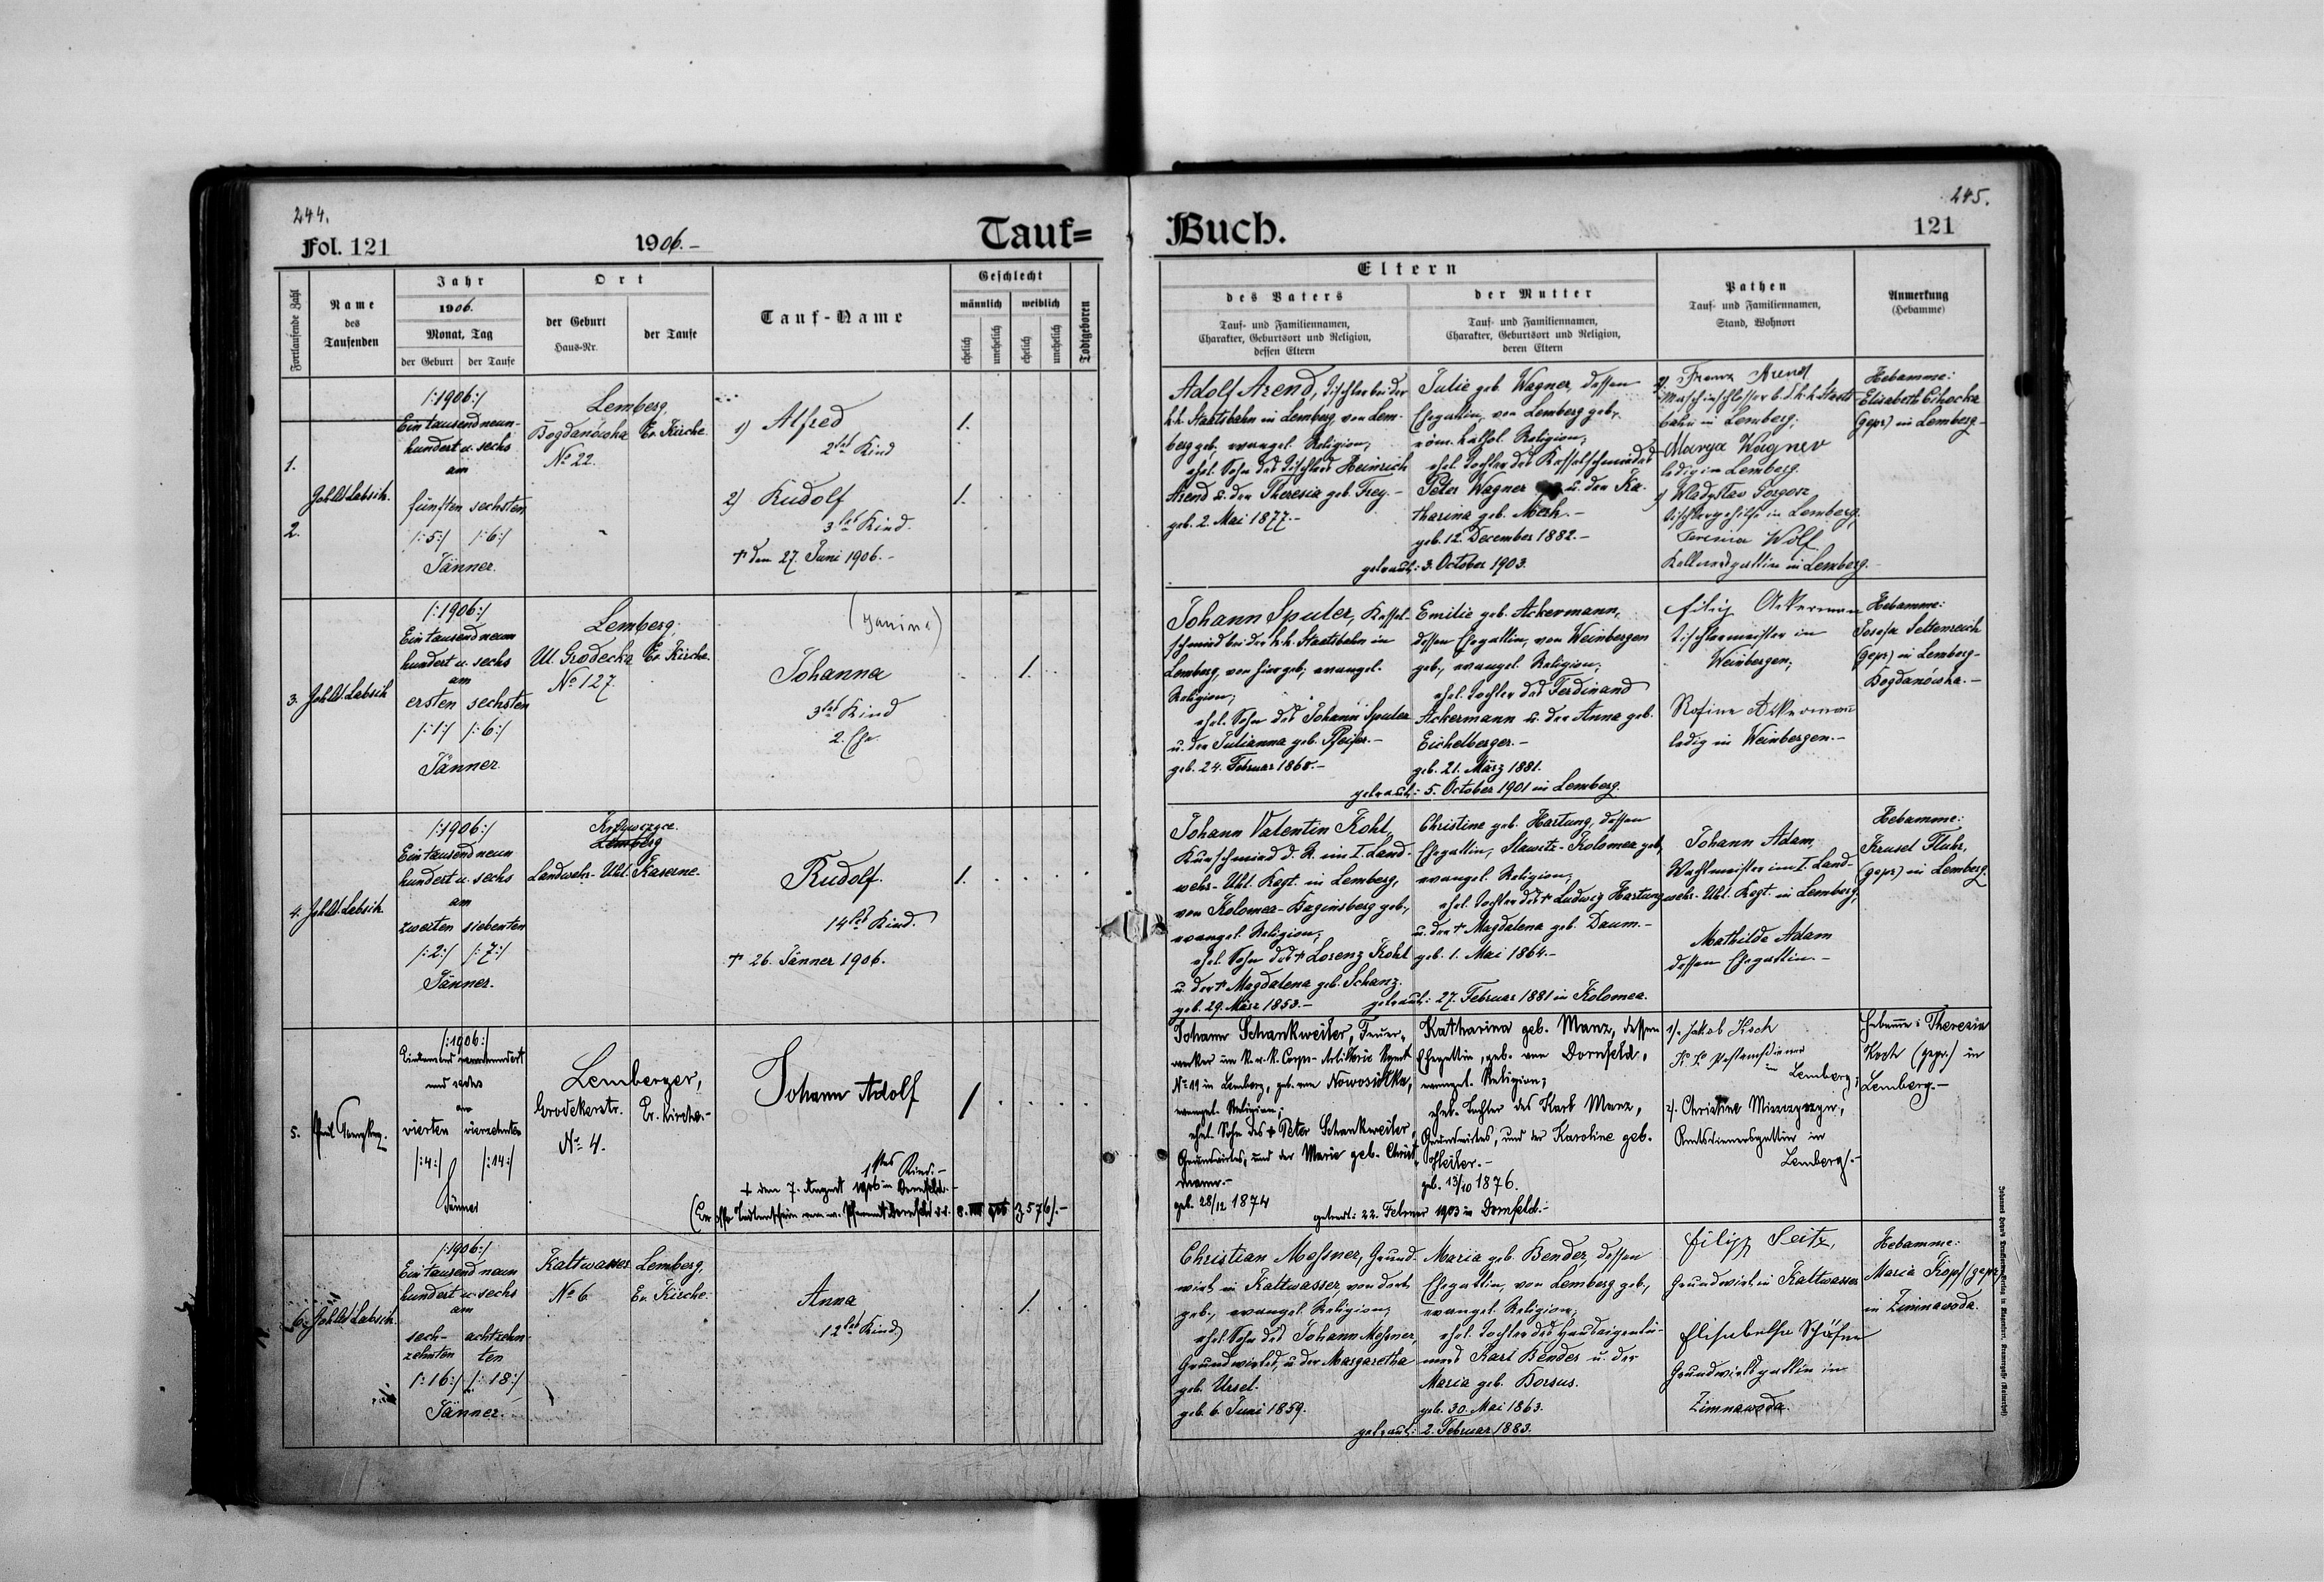 244.
Fol. 121
1906.-
Tauf=
Fortlaufende Zahl
Name
des
Taufenden
Jahr
1906.
Monat, Tag
der Geburt
der Taufe
Ort
der Geburt
Haus-Nr.
der Taufe
Tauf-Name
Geschlecht
männlich
weiblich
ehelich
unehelich
ehelich
unehelich
Todtgeboren
1.
2.
/:1906:/
Ein tausend neun-
hundert u. sechs
am
fünften sechsten
/:5:/ /:6:/
Jänner.
Lemberg
Bogdanówka Ev. Kirche.
No 22.
1) Alfred
2tes Kind
1.
2) Rudolf
3tes Kind.
1.
† den 27. Juni 1906.-
3.
/:1906:/
Ein tausend neun
hundert u. sechs
am
ersten sechsten
/:1:/ /:6:/
Jänner.
Lemberg.
Ul. Grodecka Ev. Kirche.
No 127.
(Janina)
Johanna
3tes Kind
2. Ehe.
1.
4.
/:1906:/
Ein tausend neun
hundert u. sechs
am
zweiten siebenten
/:2:/ /:7:/
Jänner.
Krzywczyce.
Lemberg
Landwehr-Uhl. Kaserne.
Rudolf.
14tes Kind.
† 26. Jänner 1906.
1.
5.
/:1906:/
und sechs
am
vierten vierzehnten
/:4:/ /:14:/
Jänner
Lemberger,
Grodekerstr. Ev. Kirche.-
No 4.
Johann Adolf
1tes Kind:-
† den 7. August 1906 in Dornfeld.-
1
6.
/:1906:/
Ein tausend neun
hundert u. sechs
am
sech- achtzehn-
zehnten ten
/:16:/ /:18:/
Jänner.
Kaltwasser Lemberg,
No 6. Ev. Kirche.
Anna
12tes Kind
1.
245.
Buch.
121
Eltern
des Vaters
Tauf- und Familiennamen,
Charakter, Geburtsort und Religion,
dessen Eltern
der Mutter
Tauf- und Familiennamen,
Charakter, Geburtsort und Religion,
deren Eltern
Pathen
Tauf- und Familiennamen,
Stand, Wohnort
Anmerkung
(Hebamme)
Adolf Arend, Tischler bei der
k.k. Staatsbahn in Lemberg, von Lem-
berg geb. evangel. Religion;
ehel. Sohn des Tischlers Heinrich
Arend u. der Theresia geb. Frey.-
geb. 2. Mai 1877.-
Julie geb. Wagner, dessen
Ehegattin, von Lemberg geb.
röm. kathol. Religion;
ehel. Tochter des Kesselschmiedes
Peter Wagner u. der Ka-
tharina geb. Merk.-
geb. 12. December 1882.-
getraut: 3. October 1903.
Franz Arend
Maschinschlosser b. d. k.k. Staats-
bahn in Lemberg;
Marya Wagner
ledig in Lemberg.
Wladyslav Gorgosz
Tischlergehilfe in Lemberg,
Wolf
Kellnersgattin in Lemberg.-
Hebamme:
Elisabeth Cihocka
(gepr.) in Lemberg-
Johann Sputer, Kessel-
schmied bei der k.k. Staatsbahn in
Lemberg, von hier geb; evangel.
Religion;
ehel. Sohn des Johann Sputer
u. der Julianna geb. Pfeifer.-
geb. 24. Februar 1868.-
Emilie geb. Ackermann,
dessen Ehegattin, von Weinbergen
geb., evangel. Religion;
ehel. Tochter des Ferdinand
Ackermann u. der Anna geb.
Eichelberger.-
geb. 21. März 1881.
getraut: 5. October 1901 in Lemberg.
Filip Ackerman
Tischlermeister in
Weinbergen;
Rosine Ackerman
ledig in Weinbergen.-
Hebamme:
Josefa Settenreich
(gepr.) in Lemberg-
Bogdanówka.-
Johann Valentin Kohl,
Kurschmied d. R. im I. Land-
wehr-Uhl. Regt. in Lemberg,
von Kolomea-Baginsberg geb.,
evangel. Religion;
ehel. Sohn des † Lorenz Kohl
u. der † Magdalena geb. Schanz.
geb. 29. März 1853.-
Christine geb. Hartung, dessen
Ehegattin, Slawitz-Kolomea geb,
evangel. Religion;
ehel. Tochter des † Ludwig Hartung
u. der † Magdalena geb. Daum.-
geb. 1. Mai 1864.-
getraut: 27. Februar 1881 in Kolomea.
Johann Adam,
Wachtmeister im I. Land-
wehr-Uhl. Regt. in Lemberg;
Mathilde Adam
dessen Ehegattin.-
Hebamme:
Krusel Fluhr,
(gepr.) in Lemberg.
Johann Schankweiler, Feuer-
werker im k.u.k. Corps-Artillerie Regmt
No 11 in Lemberg, geb. von Nowosiolka,
evangel. Religion;
ehel. Sohn des † Peter Schankweiler,
Grundwirtes, und der Marie geb. Christ-
mann.-
geb. 28/12 1874
Katharina geb. Manz, dessen
Ehegattin, geb. von Dornfeld,
evangel. Religion;
ehel. Tochter des Karl Manz,
Grundwirtes, und der Karoline geb.
geb. 13/10 1876.
getraut: 22. Februar 1903 in Dornfeld.-
1/. Jakob Koch
K. k. Postamtsdiener
in Lemberg;
2/. Christine
Amtsdienersgattin in
Lemberg.-
Hebamme: Theresia
Koch (gepr.) in
Lemberg.-
Christian Meßner, Grund-
wirt in Kaltwasser, von dort
geb., evangel. Religion;
ehel. Sohn des Johann Meßner,
Grundwirtes, u. der Margaretha
geb. Ursel.
geb. 6. Juni 1859.
Maria geb. Bender, dessen
Ehegattin, von Lemberg geb.,
evangel. Religion;
ehel. Tochter des Hauseigentü-
mers Karl Bender u. der
Maria geb. Borsus.
geb. 30. Mai 1863.
getraut: 2. Februar 1883.
Filipp Seitz,
Grundwirt in Kaltwasser
Elisabetha Schäfer
Grundwirtsgattin in
Zimnawoda.
Hebamme:
Maria Kopf (gepr.)
in Zimnawoda.